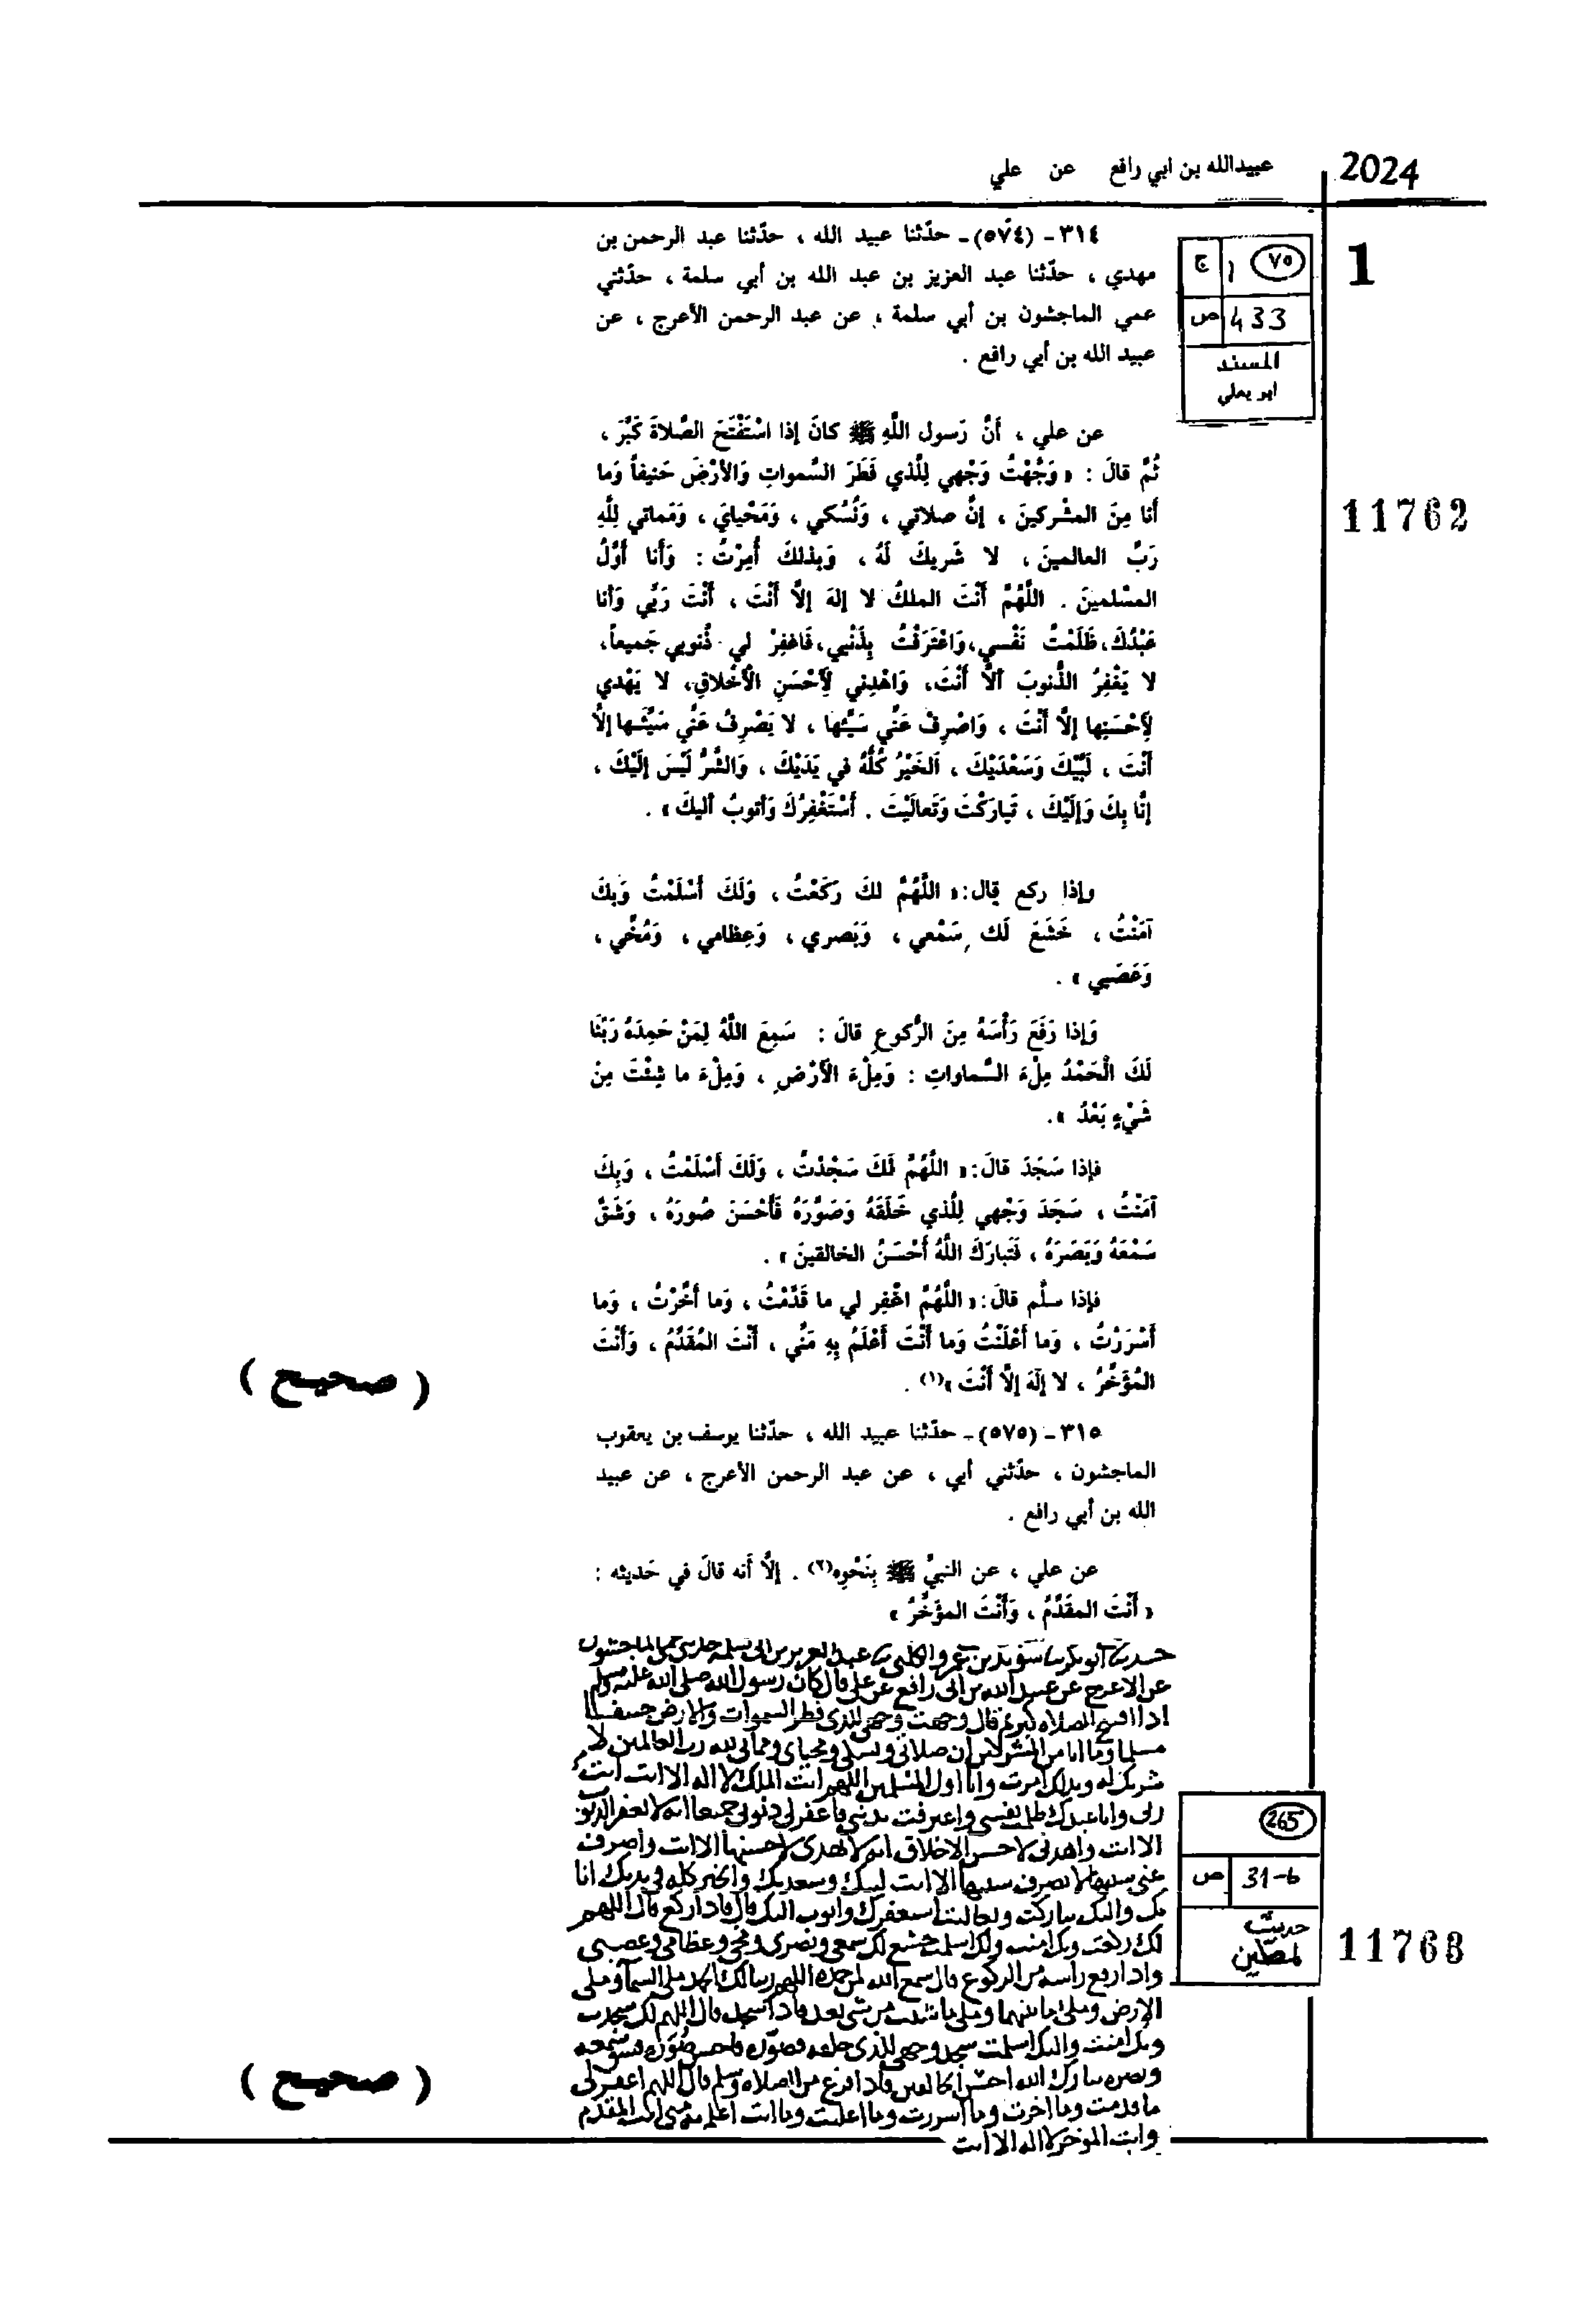 2024
عبيدالله بن ابي رافع عن علي
1
٧٥ ١ ج
433 ص
المسند
ابو يعلي
٣١٤ - (٥٧٤) - حدّثنا عبيد الله ، حدّثنا عبد الرحمن بن
مهدي ، حدّثنا عبد العزيز بن عبد الله بن أبي سلمة ، حدّثني
عمي الماجشون بن أبي سلمة ، عن عبد الرحمن الأعرج ، عن
عبيد الله بن أبي رافع .
11762
عن علي ، أنَّ رَسول اللَّهِ ﷺ كانَ إذا اسْتَفْتَحَ الصَّلاةَ كَبَّرَ ،
ثُمَّ قالَ : « وَجَّهْتُ وَجْهي لِلَّذي فَطَرَ السَّمواتِ وَالأرْضَ حَنيفاً وَما
أَنا مِنَ المشْركينَ ، إنَّ صلاتي ، وَنُسُكي ، وَمَحْيايَ ، وَمَماتي لِلَّهِ
رَبِّ العالمينَ ، لا شَريكَ لَهُ ، وَبِذلكَ أُمِرْتُ : وَأَنا أَوَّلُ
المسْلمينَ . اللَّهُمَّ أَنْتَ الملكُ لا إلهَ إلَّا أَنْتَ ، أَنْتَ رَبِّي وَأنا
عَبْدُكَ، ظَلَمْتُ نَفْسي، وَاعْتَرَفْتُ بِذَنْبي، فَاغفِرْ لي ذُنوبي جَميعاً،
لا يَغْفِرُ الذُّنوبَ ألَّا أَنْتَ، وَاهْدِني لِأَحْسَنِ الْأَخْلاقِ، لا يَهْدي
لِأَحْسَنِها إلَّا أَنْتَ ، وَاصْرِفْ عَنِّي سَيِّئَها ، لا يَصْرِفُ عَنِّي سَيِّئَها إلَّا
أَنْتَ ، لَبَّيْكَ وَسَعْدَيْكَ ، اَلخَيْرُ كُلُّهُ في يَدَيْكَ ، وَالشَّرُّ لَيْسَ إِلَيْكَ ،
إنَّا بِكَ وَإِلَيْكَ ، تَبارَكْتَ وَتَعالَيْتَ . أَسْتَغْفِرُكَ وَأتوبُ أليكَ » .
وإذا ركع قال: « اللَّهُمَّ لكَ رَكَعْتُ ، وَلَكَ أَسْلَمْتُ وَبِكَ
آمَنْتُ ، خَشَعَ لَك سَمْعي ، وَبَصَري ، وَعِظامي ، وَمُخِّي ،
وَعَصَبي » .
وَإذا رَفَعَ رَأْسَهُ مِنَ الرُّكوعِ قالَ : سَمِعَ اللَّهُ لِمَنْ حَمِدَهُ رَبَّنَا
لَكَ الْحَمْدُ مِلْءَ السَّماواتِ : وَمِلْءَ الْأَرْضِ ، وَمِلْءَ ما شِئْتَ مِنْ
شَيْءٍ بَعْدُ » .
فإذا سَجَدَ قالَ: « اللَّهُمَّ لَكَ سَجْدْتُ ، وَلَكَ أَسْلَمْتُ ، وَبِكَ
آمَنْتُ ، سَجَدَ وَجْهي لِلَّذي خَلَقَهُ وَصَوَّرَهُ فَأَحْسَنَ صُورَهُ ، وَشَقَّ
سَمْعَهُ وَبَصَرَهُ ، فَتَبارَكَ اللَّهُ أَحْسَنُ الخالقينَ » .
فإذا سلَّم قالَ: « اللَّهُمَّ اغْفِر لي ما قَدَّمْتُ ، وَما أَخَّرْتُ ، وَما
أَسْرَرْتُ ، وَما أَعْلَنْتُ وَما أَنْتَ أَعْلَمُ بِهِ مَنِّي ، أَنْتَ المُقَدِّمُ ، وَأَنْتَ
المُؤَخِّرُ ، لا إلَهَ إلَّا أَنْتَ » (١) .
( صحيح )
٣١٥ - (٥٧٥) - حدّثنا عبيد الله ، حدّثنا يوسف بن يعقوب
الماجشون ، حدّثني أبي ، عن عبد الرحمن الأعرج ، عن عبيد
الله بن أبي رافع .
عن علي ، عن النبيِّ ﷺ بِنَحْوِهِ (٢) . إلَّا أَنه قالَ في حَديثه :
« أَنْتَ المقَدِّمُ ، وَأَنْتَ المؤَخِّرُ »
265
31-b ص
حديث
لمطين
11763
حدثنا أبو بكر سويد بن عمرو الكلبي عبد العزيز بن ابي سلمه الماجشون
عن الاعرج عن عبيد الله بن ابى رافع عن على قال كان رسول الله صلى الله عليه وسلم
اذا افتتح الصلاه كبر ثم قال وجهت وجهي للذي فطر السموات والارض حنيفا
مسلما وما انا من المشركين ان صلاتي ونسكي ومحياي ومماتي لله رب العالمين لا
شريك له وبذلك امرت وانا اول المسلمين اللهم انت الملك لا اله الا انت انت
ربي وانا عبدك ظلمت نفسي واعترفت بذنبي فاغفر لي ذنوبي جميعا انه لا يغفر الذنوب
الا انت واهدني لاحسن الاخلاق انه لا يهدي لاحسنها الا انت واصرف
عني سيئها لا يصرف سيئها الا انت لبيك وسعديك والخير كله في يديك انا
بك واليك تباركت وتعاليت استغفرك واتوب اليك قال فاذا ركع قال اللهم
لك ركعت وبك امنت ولك اسلمت خشع لك سمعي وبصري ومخي وعظامي وعصبي
واذا رفع راسه من الركوع قال سمع الله لمن حمده اللهم ربنا لك الحمد ملى السما وملى
الارض وملى ما بينهما وملى ما شئت من شي بعد فاذا سجد قال اللهم لك سجدت
وبك امنت واليك اسلمت سجد وجهي للذي خلقه وصوره فاحسن صوره وشق سمعه
وبصره تبارك الله احسن الخالقين فاذا فرغ من الصلاه وسلم قال اللهم اغفر لي
ما قدمت وما اخرت وما اسررت وما اعلنت وما انت اعلم به مني انت المقدم
وانت الموخر لا اله الا انت
( صحيح )